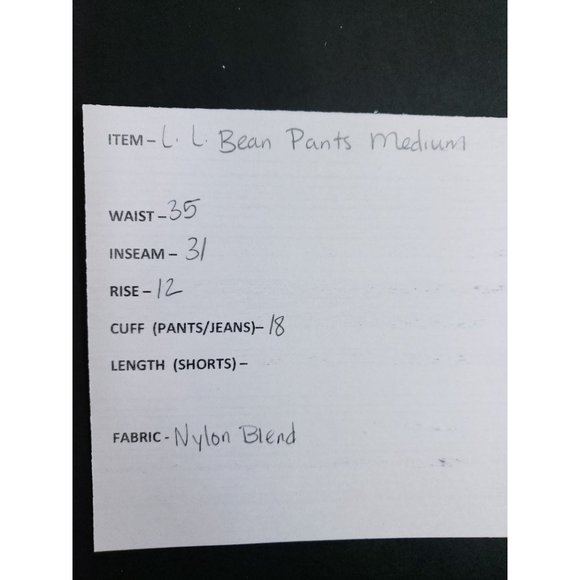 ITEM – L. L. Bean Pants Medium
WAIST – 35
INSEAM – 31
RISE – 12
CUFF (PANTS/JEANS)– 18
LENGTH (SHORTS) –
FABRIC - Nylon Blend